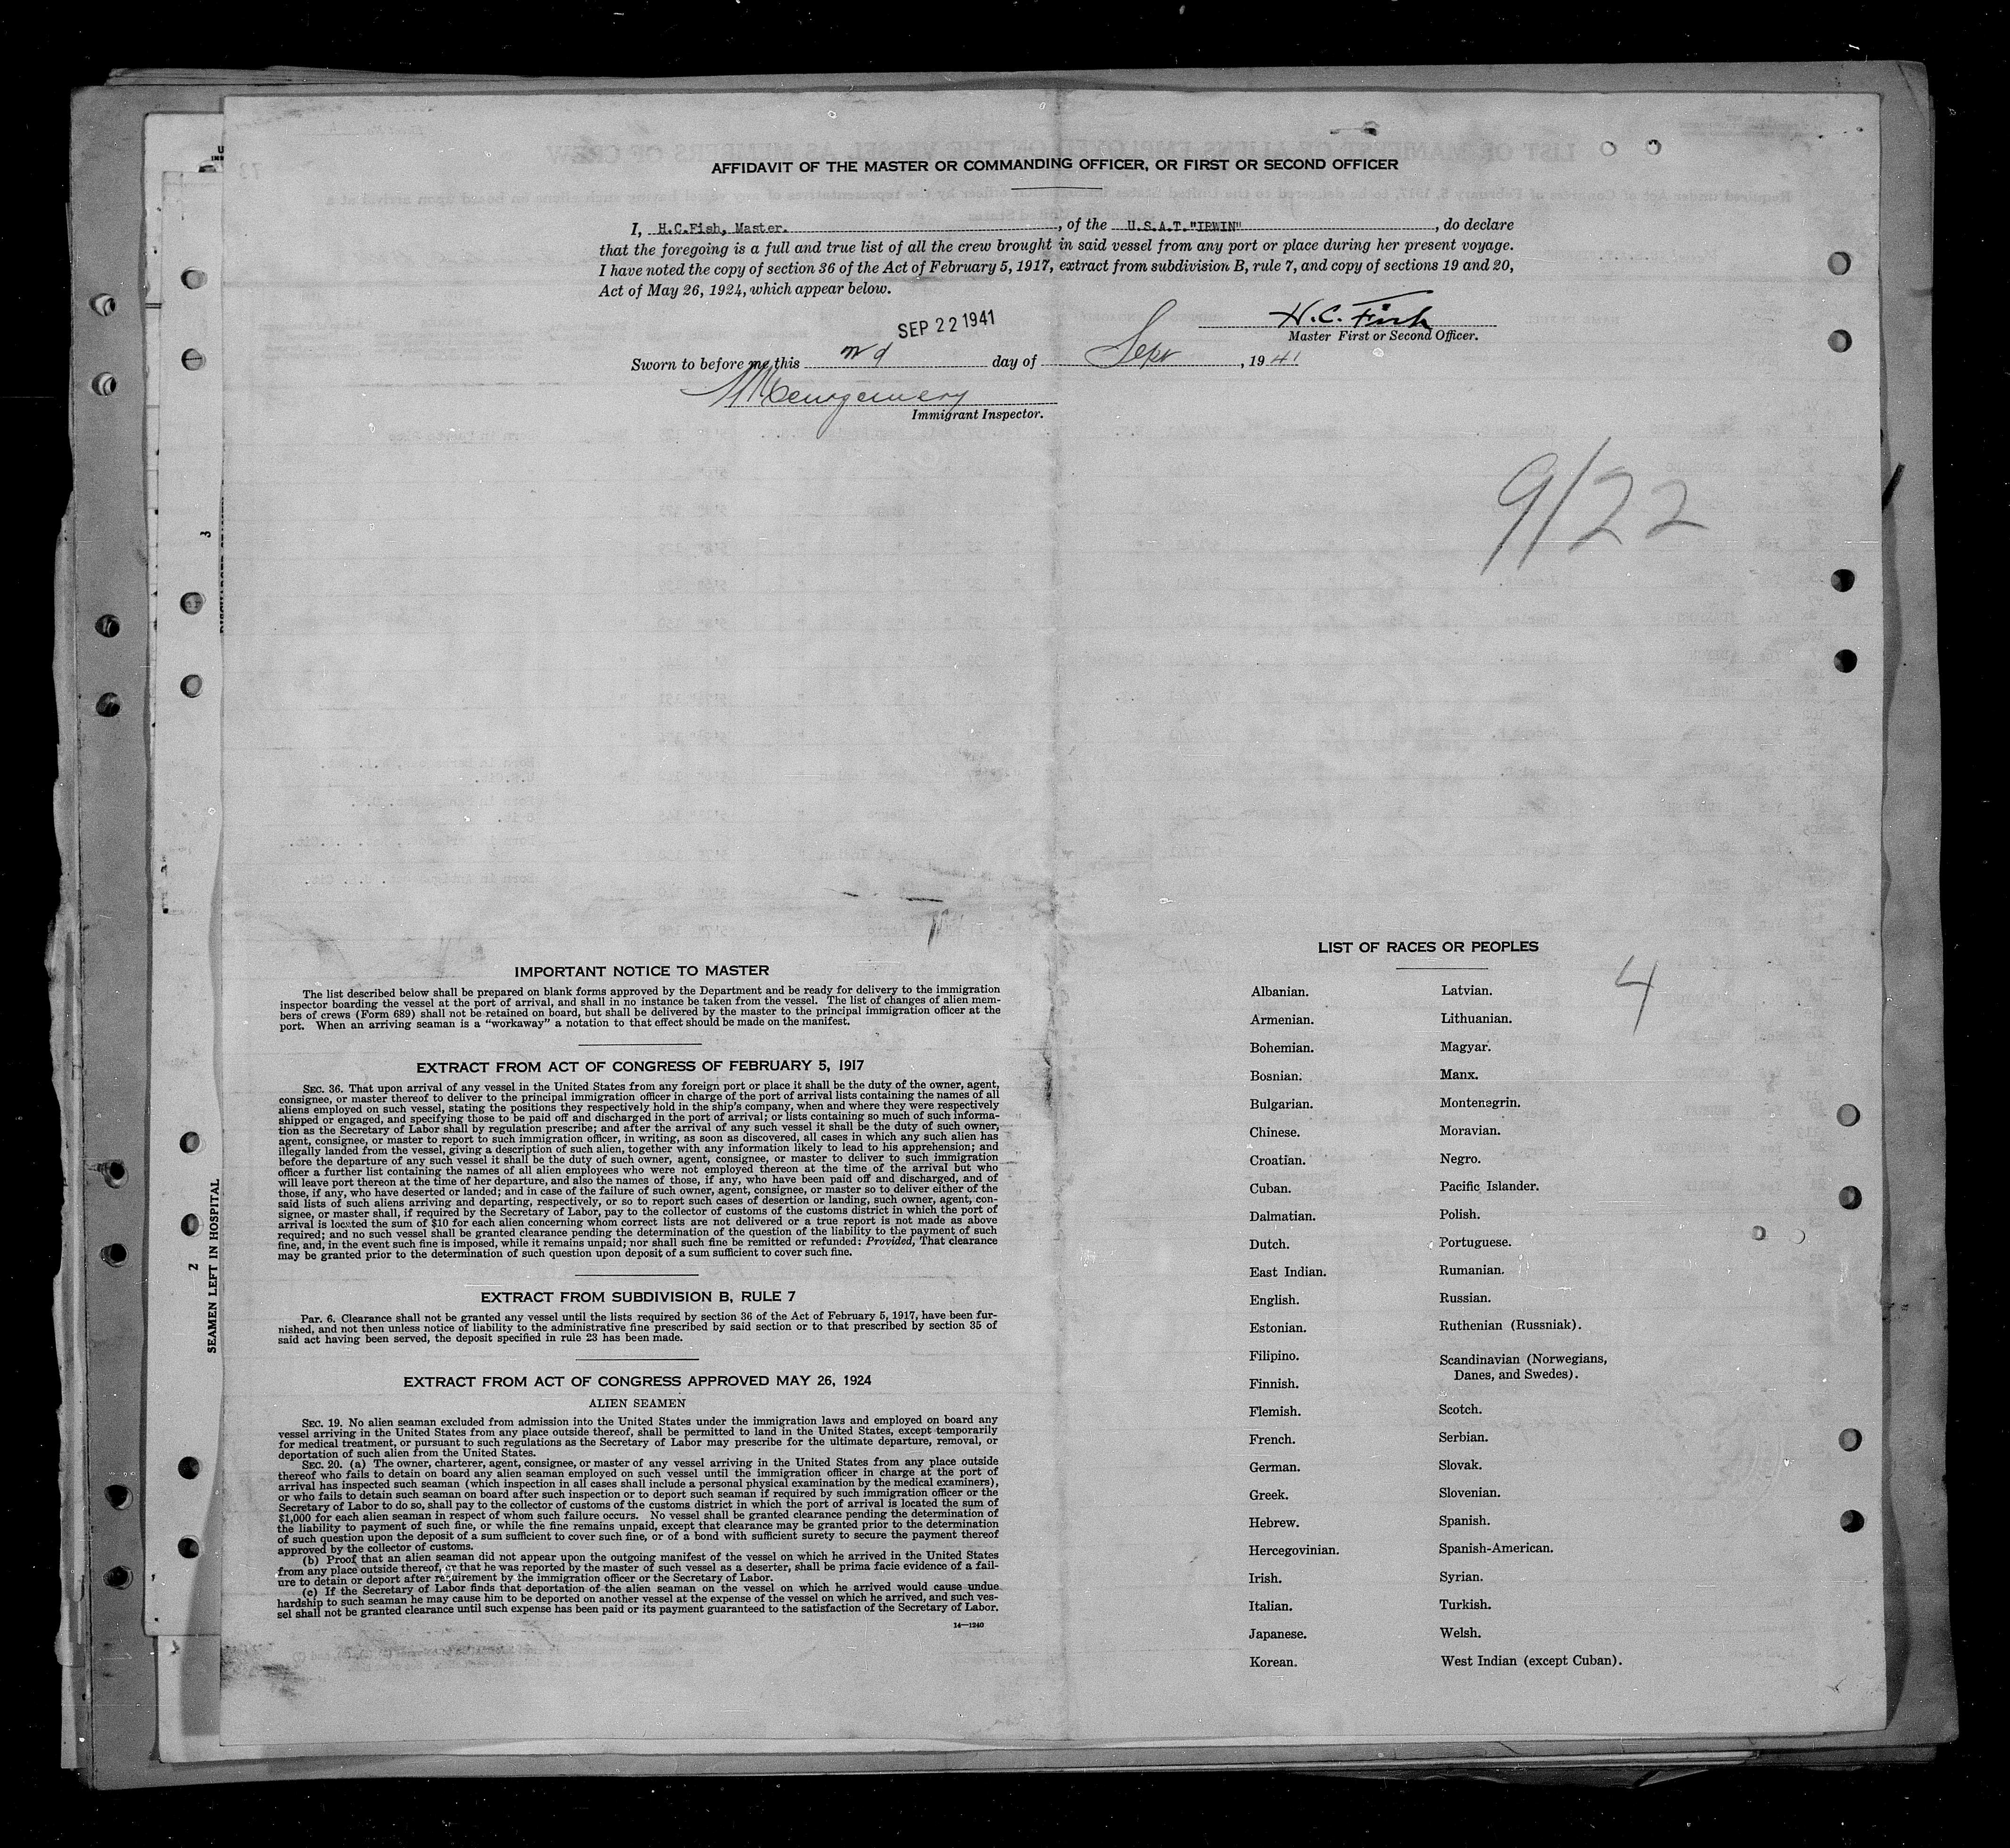 AFFIDAVIT OF THE MASTER OR COMMANDING OFFICER, OR FIRST OR SECOND OFFICER
I, H.C.Fish, Master. , of the U.S.A.T."IRWIN" , do declare
that the foregoing is a full and true list of all the crew brought in said vessel from any port or place during her present voyage.
I have noted the copy of section 36 of the Act of February 5, 1917, extract from subdivision B, rule 7, and copy of sections 19 and 20,
Act of May 26, 1924, which appear below.
SEP 22 1941
H. C. Fish
Master First or Second Officer.
Sworn to before me this day of Sept , 1941
Immigrant Inspector.
9/22
IMPORTANT NOTICE TO MASTER
The list described below shall be prepared on blank forms approved by the Department and be ready for delivery to the immigration
inspector boarding the vessel at the port of arrival, and shall in no instance be taken from the vessel. The list of changes of alien mem-
bers of crews (Form 689) shall not be retained on board, but shall be delivered by the master to the principal immigration officer at the
port. When an arriving seaman is a "workaway" a notation to that effect should be made on the manifest.
EXTRACT FROM ACT OF CONGRESS OF FEBRUARY 5, 1917
SEC. 36. That upon arrival of any vessel in the United States from any foreign port or place it shall be the duty of the owner, agent,
consignee, or master thereof to deliver to the principal immigration officer in charge of the port of arrival lists containing the names of all
aliens employed on such vessel, stating the positions they respectively hold in the ship's company, when and where they were respectively
shipped or engaged, and specifying those to be paid off and discharged in the port of arrival; or lists containing so much of such informa-
tion as the Secretary of Labor shall by regulation prescribe; and after the arrival of any such vessel it shall be the duty of such owner,
agent, consignee, or master to report to such immigration officer, in writing, as soon as discovered, all cases in which any such alien has
illegally landed from the vessel, giving a description of such alien, together with any information likely to lead to his apprehension; and
before the departure of any such vessel it shall be the duty of such owner, agent, consignee, or master to deliver to such immigration
officer a further list containing the names of all alien employees who were not employed thereon at the time of the arrival but who
will leave port thereon at the time of her departure, and also the names of those, if any, who have been paid off and discharged, and of
those, if any, who have deserted or landed; and in case of the failure of such owner, agent, consignee, or master so to deliver either of the
said lists of such aliens arriving and departing, respectively, or so to report such cases of desertion or landing, such owner, agent, con-
signee, or master shall, if required by the Secretary of Labor, pay to the collector of customs of the customs district in which the port of
arrival is located the sum of $10 for each alien concerning whom correct lists are not delivered or a true report is not made as above
required; and no such vessel shall be granted clearance pending the determination of the question of the liability to the payment of such
fine, and, in the event such fine is imposed, while it remains unpaid; nor shall such fine be remitted or refunded: Provided, That clearance
may be granted prior to the determination of such question upon deposit of a sum sufficient to cover such fine.
EXTRACT FROM SUBDIVISION B, RULE 7
Par. 6. Clearance shall not be granted any vessel until the lists required by section 36 of the Act of February 5, 1917, have been fur-
nished, and not then unless notice of liability to the administrative fine prescribed by said section or to that prescribed by section 35 of
said act having been served, the deposit specified in rule 23 has been made.
EXTRACT FROM ACT OF CONGRESS APPROVED MAY 26, 1924
ALIEN SEAMEN
SEC. 19. No alien seaman excluded from admission into the United States under the immigration laws and employed on board any
vessel arriving in the United States from any place outside thereof, shall be permitted to land in the United States, except temporarily
for medical treatment, or pursuant to such regulations as the Secretary of Labor may prescribe for the ultimate departure, removal, or
deportation of such alien from the United States.
SEC. 20. (a) The owner, charterer, agent, consignee, or master of any vessel arriving in the United States from any place outside
thereof who fails to detain on board any alien seaman employed on such vessel until the immigration officer in charge at the port of
arrival has inspected such seaman (which inspection in all cases shall include a personal physical examination by the medical examiners),
or who fails to detain such seaman on board after such inspection or to deport such seaman if required by such immigration officer or the
Secretary of Labor to do so, shall pay to the collector of customs of the customs district in which the port of arrival is located the sum of
$1,000 for each alien seaman in respect of whom such failure occurs. No vessel shall be granted clearance pending the determination of
the liability to payment of such fine, or while the fine remains unpaid, except that clearance may be granted prior to the determination
of such question upon the deposit of a sum sufficient to cover such fine, or of a bond with sufficient surety to secure the payment thereof
approved by the collector of customs.
(b) Proof that an alien seaman did not appear upon the outgoing manifest of the vessel on which he arrived in the United States
from any place outside thereof, or that he was reported by the master of such vessel as a deserter, shall be prima facie evidence of a fail-
ure to detain or deport after requirement by the immigration officer or the Secretary of Labor.
(c) If the Secretary of Labor finds that deportation of the alien seaman on the vessel on which he arrived would cause undue
hardship to such seaman he may cause him to be deported on another vessel at the expense of the vessel on which he arrived, and such ves-
sel shall not be granted clearance until such expense has been paid or its payment guaranteed to the satisfaction of the Secretary of Labor.
14—1240
LIST OF RACES OR PEOPLES
4
Albanian.
Armenian.
Bohemian.
Bosnian.
Bulgarian.
Chinese.
Croatian.
Cuban.
Dalmatian.
Dutch.
East Indian.
English.
Estonian.
Filipino.
Finnish.
Flemish.
French.
German.
Greek.
Hebrew.
Hercegovinian.
Irish.
Italian.
Japanese.
Korean.
Latvian.
Lithuanian.
Magyar.
Manx.
Montenegrin.
Moravian.
Negro.
Pacific Islander.
Polish.
Portuguese.
Rumanian.
Russian.
Ruthenian (Russniak).
Scandinavian (Norwegians,
Danes, and Swedes).
Scotch.
Serbian.
Slovak.
Slovenian.
Spanish.
Spanish-American.
Syrian.
Turkish.
Welsh.
West Indian (except Cuban).
3
2
SEAMEN LEFT IN HOSPITAL